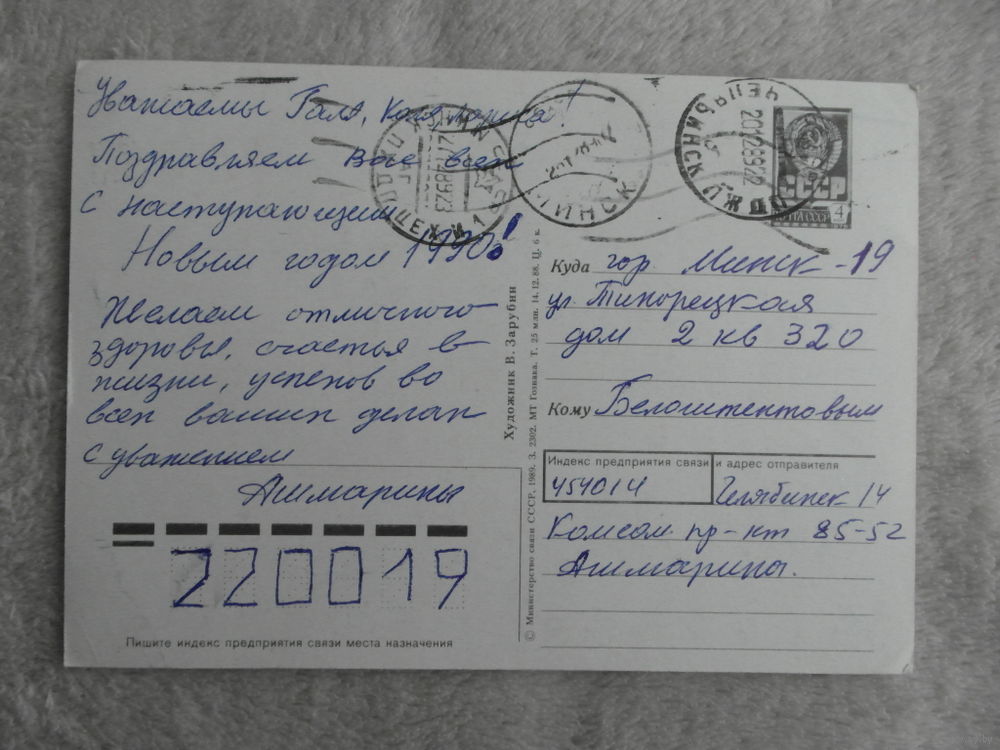 Уважаемы Галя, Коля, Лариса!
Поздравляем Вас всех
с наступающим
Новым годом 1990!
Желаем отличного
здоровы, счастья в
жизни, успехов во
всех ваших делах
с уважением
Ашмарины
220019
Пишите индекс предприятия связи места назначения
© Министерство связи СССР, 1989. З. 2302. МТ Гознака. Т. 25 млн. 14.12.88. Ц. 6 к.
Художник В. Зарубин
МИНСК
ЧЕЛЯБИНСК
20128922
СССР
ПОЧТА СССР
4
Куда гор Минск-19
ул. Тихорецкая
дом 2 кв 320
Кому Белоштентовым
Индекс предприятия связи и адрес отправителя
454014 Челябинск 14
Комсом. пр-кт 85-52
Ашмарины.